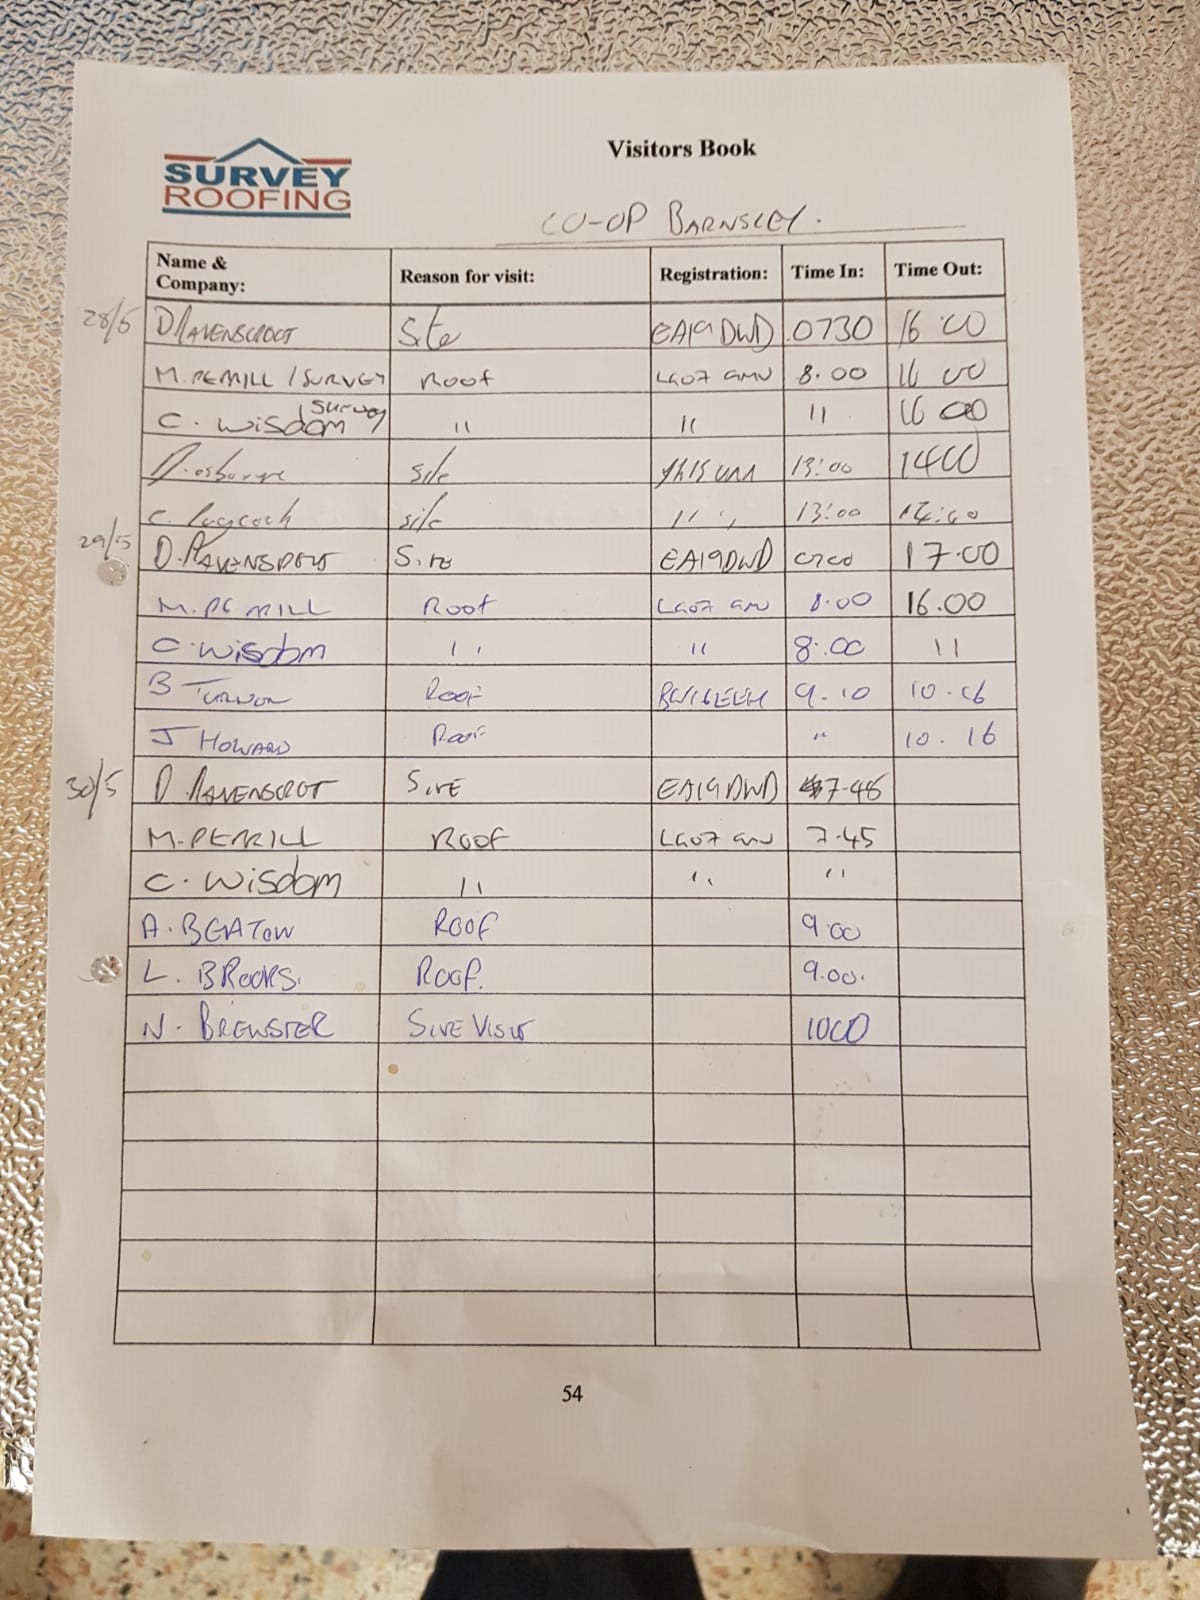 SURVEY
ROOFING
Visitors Book
CO-OP BARNSLEY.
Name & Company: Reason for visit: Registration: Time In: Time Out:
28/5 D RAVENSCROFT Site EA19 DWD 0730 16.00
M. PERRILL / SURVEY ROOF LG07 8.00 16 00
C. WISDOM / Survey " " " 16 00
D. osburne site 13:00 1400
C. site " " 13:00
29/5 D. SITE EA19DWD 17.00
M. PERRILL ROOF LG07 8.00 16.00
C. WISDOM " " 8.00 "
B ROOF 9.10 10.16
J HOWARD ROOF " 10.16
30/5 D. RAVENSCROT SITE EA19 DWD 7.45
M. PERRILL ROOF LG07 7.45
C. WISDOM " " "
A. BEATON ROOF 9.00
L. BROOKS. ROOF. 9.00.
N. BREWSTER SITE VISIT 1000
54